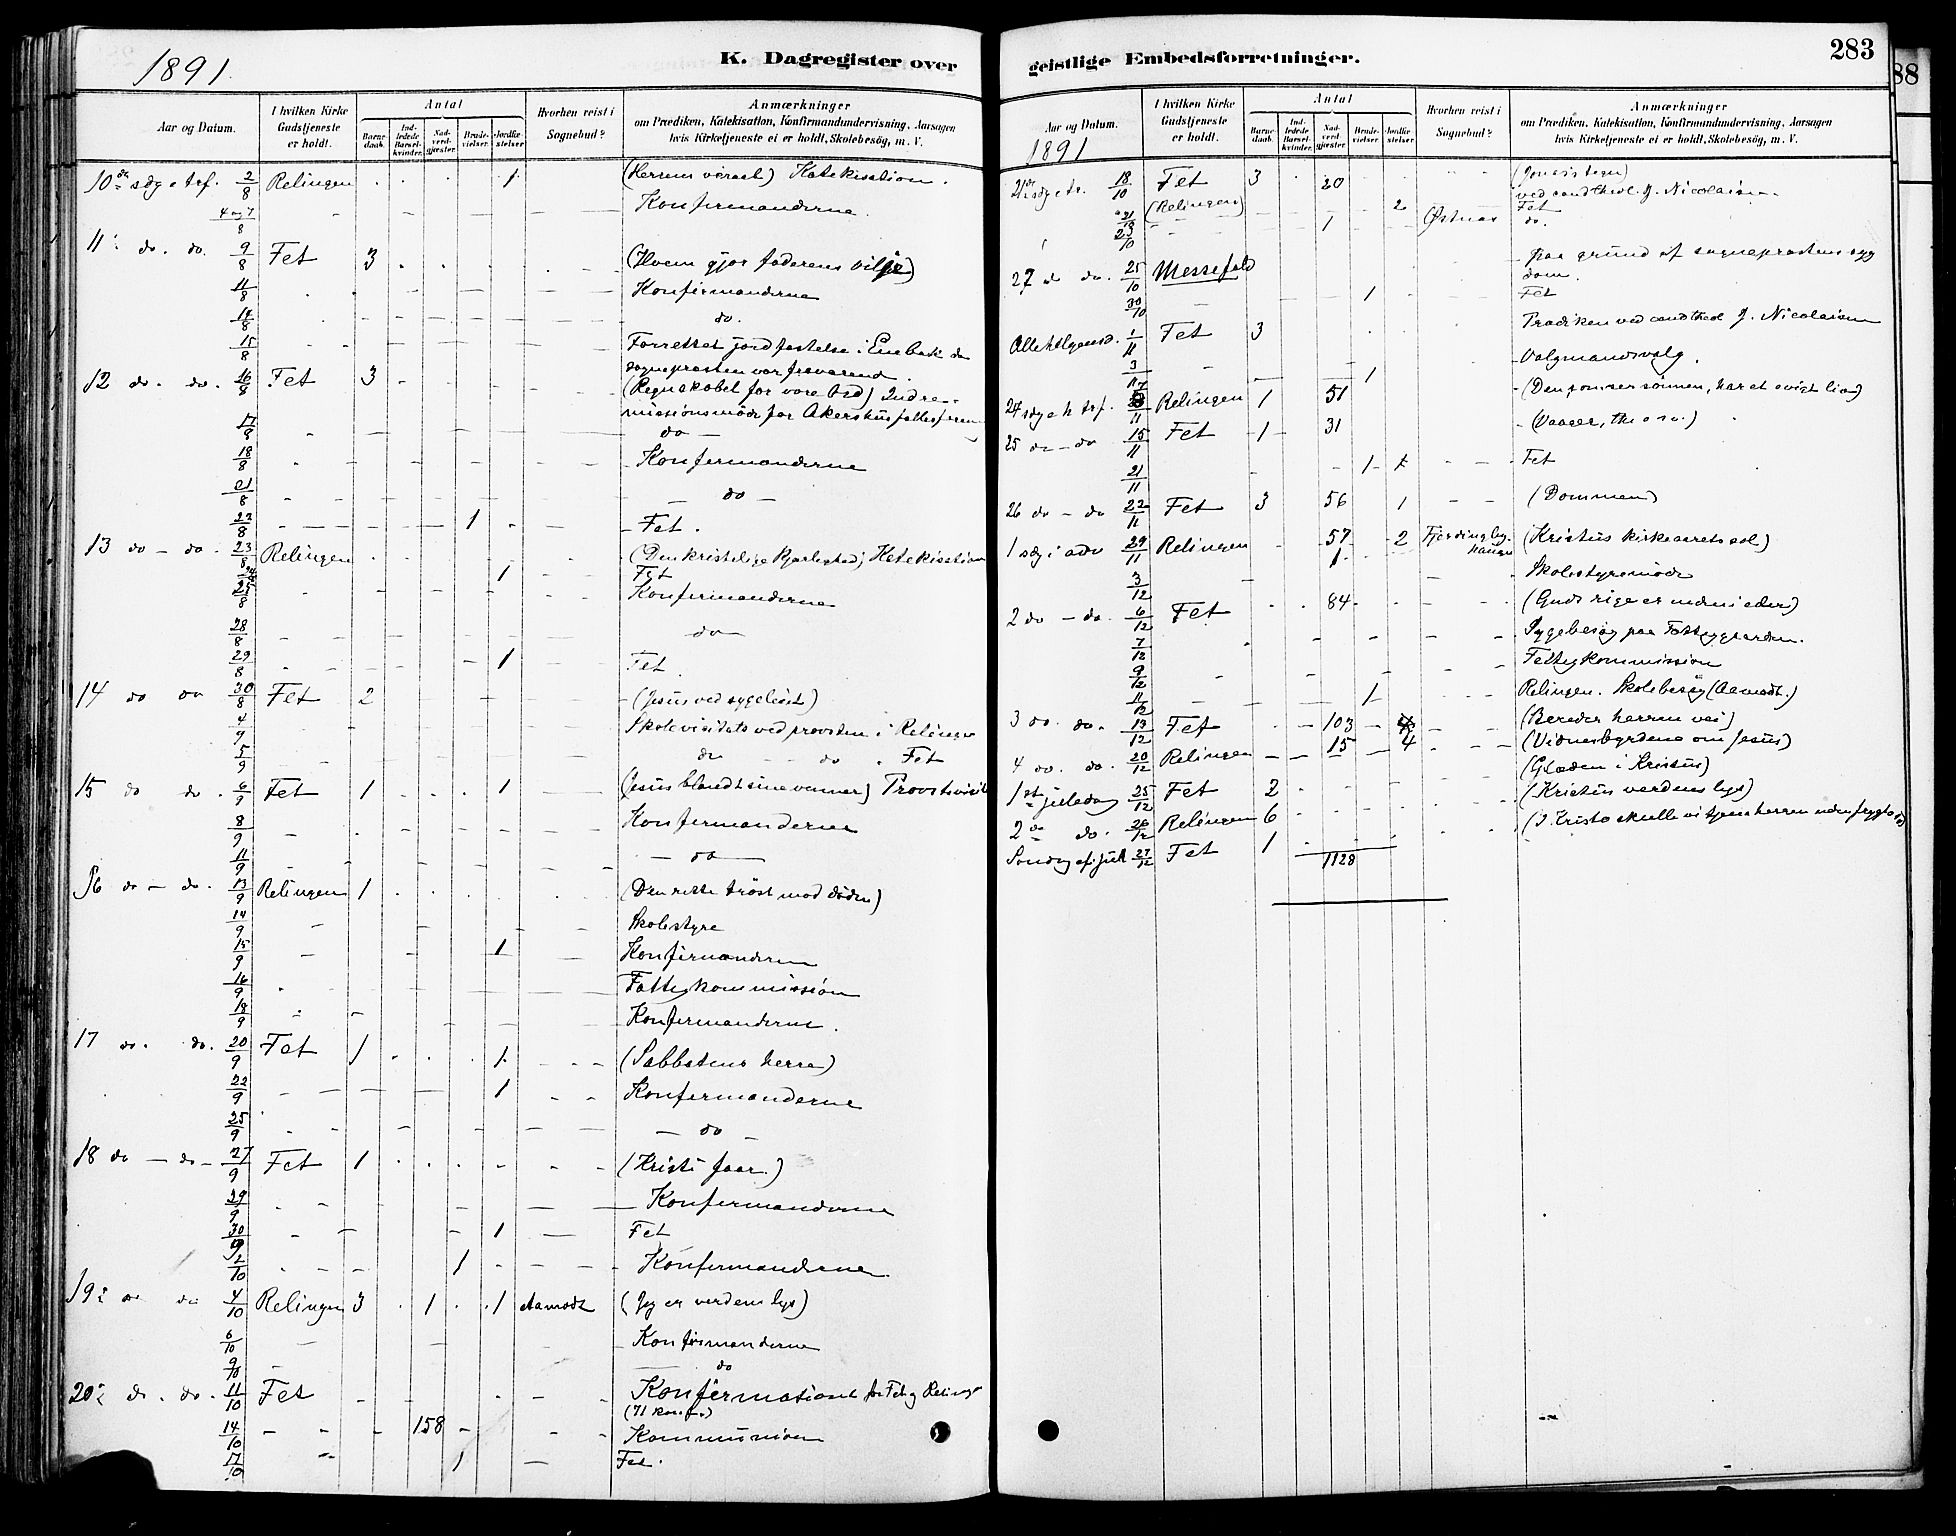 1891.
K. Dagregister over
Aar og Datum.
I hvilken Kirke Gudstjeneste er holdt.
Antal
Barnedaab.
Indledede Barselkvinder.
Nadverdgjæster.
Brudevielser.
Jordfæstelser
Hvorhen reist i Sognebud?
Anmærkninger
om Prædiken, Katekisation, Konfirmandundervisning, Aarsagen
hvis Kirketjeneste ei er holdt, Skolebesøg, m. V.
2/8 Relingen 1 Katekisation.
4 og 7/8 Konfirmanderne.
11 do. do. 9/8 Fet 3 (Hvem gjør faderens vilje)
11/8 Konfirmanderne
14/8 do.
15/8 Forrettet jordfæstelse i Enebak da
sognepresten var fraværend.
12 do. do. 16/8 Fet 3 Indre-
missionsmøde for Akershus
17/8 do
18/8 Konfirmanderne
21/8 do
22/8 1 Fet.
13 do - do. 23/8 Relingen (Den kristelige Kjærlighed) Katekisation
1 Fet
25/8 Konfirmanderne
28/8 do
29/8 1 Fet.
14 do do 30/8 Fet 2 (Jesus ved sygeleiet)
4/9 Skolevisitats ved provsten i Relingen
5/9 do do Fet
15 do do. 6/9 Fet 1 1 (Jesus blandt sine venner) Provstevisit
8/9 Konfirmanderne
11/9 do
16 do - do. 13/9 Relingen 1 (Den rette trøst mod døden)
14/9 Skolestyre
15/9 1 Konfirmanderne
16/9 Fattigkommission
18/9 Konfirmanderne.
17 do. do. 20/9 Fet 1 1 (Sabbatens herre)
22/9 1 Konfirmanderne
25/9 do
18 do - do - 27/9 Fet 1 (Kristi faar.)
29/9 Konfirmanderne
30/9 1 Fet
2/10 1 Konfirmanderne.
19 do do 4/10 Relingen 3 1 1 Aamodt (Jeg er verdens lys)
6/10 Konfirmanderne
9/10 do
20 do. do. 11/10 Fet Konfirmation for Fet og Relingen
(71 konf.)
14/10 158 Kommunion
17/10 1 Fet.
geistlige Embedsforretninger.
283
88
Aar og Datum.
1891
I hvilken Kirke Gudstjeneste er holdt.
Antal
Barnedaab.
Indledede Barselkvinder.
Nadverdgjæster.
Brudevielser.
Jordfæstelser
Hvorhen reist i Sognebud?
Anmærkninger
om Prædiken, Katekisation, Konfirmandundervisning, Aarsagen
hvis Kirketjeneste ei er holdt, Skolebesøg, m. V.
18/10 Fet 3 20 (Jonas's tegn)
ved cand theol. J. Nicolaisen
21/10 (Relingen) 2 Fet
23/10 1 Østnes do.
25/10 Messefald paa grund af sogneprestens syg
dom.
30/10 1 Fet
Allehelgensd. 1/11 Fet 3 Prædiken ved cand theol J. Nicolaisen
3/11 1 Valgmandsvalg.
Relingen 1 51 (Den som ser sønnen, har et evigt liv)
25 do - do 15/11 Fet 1 31
21/11 1 1 Fet
26 do - do 22/11 Fet 3 56 1 (Dommen)
1 søg i adv 29/11 Relingen 57 2 (Kristus kirkeaarets sol)
3/12 1 Skolestyremøde
2 do - do. 6/12 Fet 84 (Guds rige er inden i eder)
7/12 Sygebesøg paa Fattiggaarden.
9/12 Fattigkommission
11/12 1 Relingen. Skolebesøg (Aamodt.)
3 do. do. 13/12 Fet 103 (Bereder herren vei)
4 do. do. 20/12 Relingen 15 4 (Vidnesbyrdene om Jesus)
(Glæden i Kristus)
1st juledag 25/12 Fet 2 (Kristus verdens lys)
2 do. 26/12 Relingen 6 (I Kristo skulle vi tjene herren uden frygt)
Søndag ef. jul 27/12 Fet 1
1128